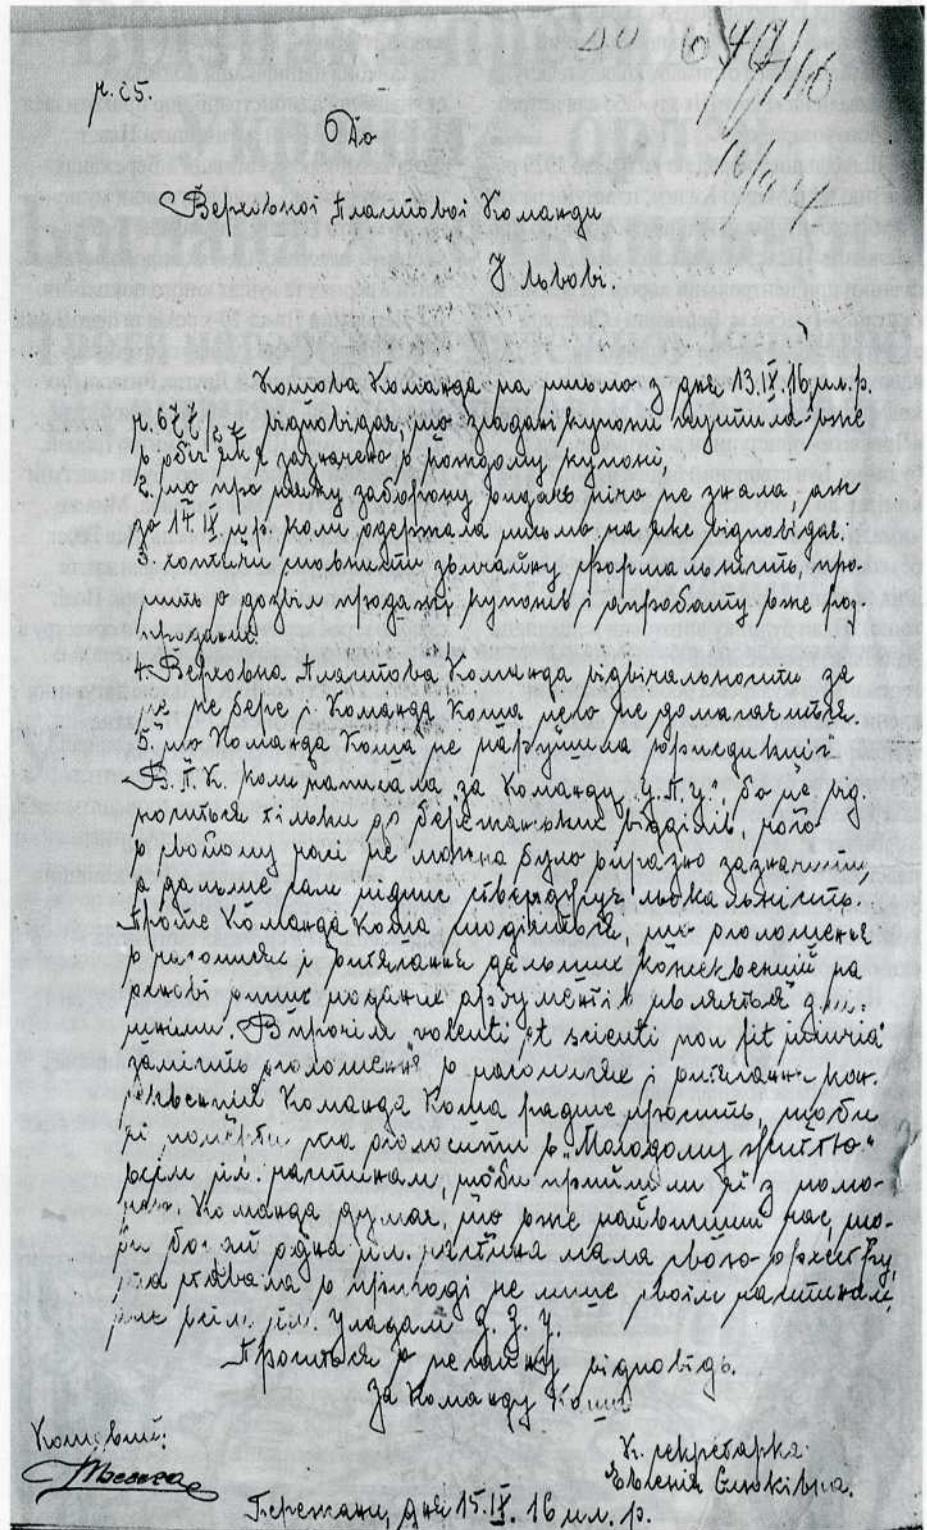 ч. 25.
До
Верховної Пластової Команди
У Львові.
Кошова Команда на письмо з дня 13.IX.16 пл. р.
відповідає, що згадані купони пустила вже
в обіг як є зазначено в кождому купоні,
2. що про яку заборону видань нічо не знала, аж
до 14 IX ц.р. коли одержала письмо на яке відповідає.
3. хотячи сповнити звичайну формальність, про-
сить о дозвіл продажі купонів і апробату вже роз-
проданих.
4. Верховна Пластова Команда відвічальности за
це не бере і Команда Коша цего не домагається.
5. що Команда Коша не нарушила юрисдикції
В.П.К. коли написала „за Команду У.П.У.", бо це від-
носиться тільки до бережанських відділів, чого
в свойому часі не можна було виразно зазначити,
а дальше сам підпис стверджує льокальність.
Проте Команда Коша сподіється, що оголошення
в часописях і витягання дальших консеквенцій на
основі вище поданих арґументів
. Впрочім „volenti et scienti non fit injuria"
замість оголошення в часописях і витягання кон-
секвенцій Команда Коша радше просить, щоби
оголосити в „Молодому життю"
всім пл. частинам, щоби прийшли їй з помо-
Команда думає, що вже найвищий час, що-
одна пл. частина мала свою орхестру,
в пригоді не лише своїм частинам,
всім пл. Уладам У. З. У.
Проситься о негайну відповідь.
За Команду Коша
Кошовий:
К. секретарка
Евгенія
Бережани, дня 15.IX.16 пл. р.